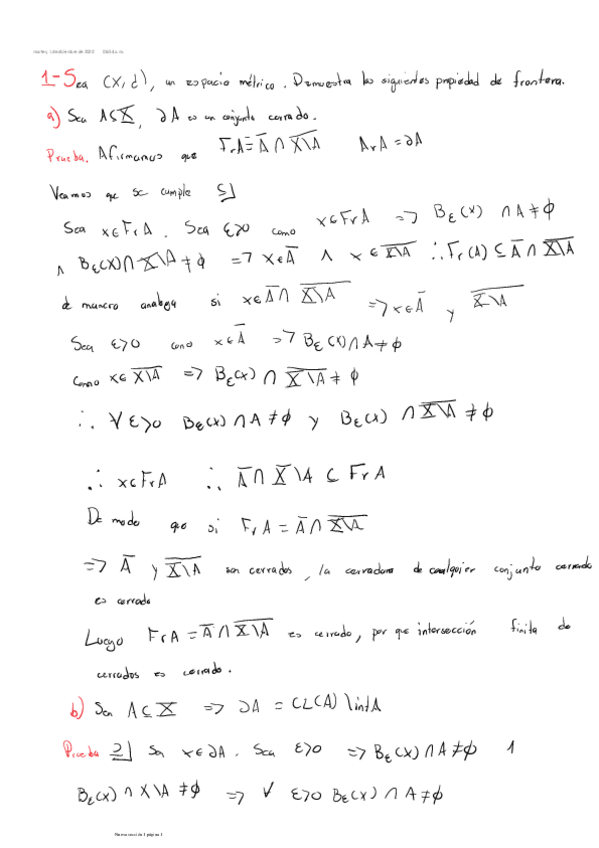 1-Sea (X,d), un espacio métrico. Demuestra las siguientes propiedad de frontera.
a) Sea A⊆X, ∂A es un conjunto cerrado.
Prueba. Afirmamos que FrA = A̅ ∩ X\A̅ ArA = ∂A
Veamos que se cumple ⊆]
Sea x∈FrA. Sea ε>0 como x∈FrA => Bε(x) ∩ A ≠ ϕ
∧ Bε(x) ∩ X\A ≠ ϕ => x∈A̅ ∧ x∈X\A̅ ∴ Fr(A) ⊆ A̅ ∩ X\A̅
de manera analoga si x∈A̅ ∩ X\A̅ => x∈A̅ y X\A̅
Sea ε>0 como x∈A̅ => Bε(x) ∩ A ≠ ϕ
Como x∈X\A̅ => Bε(x) ∩ X\A̅ ≠ ϕ
∴ ∀ε>0 Bε(x) ∩ A ≠ ϕ y Bε(x) ∩ X\A̅ ≠ ϕ
∴ x∈FrA ∴ A̅ ∩ X̅\A ⊆ FrA
De modo que si FrA = A̅ ∩ X\A̅
=> A̅ y X\A̅ son cerrados, la cerradura de cualquier conjunto cerrado
es cerrado
Luego FrA = A̅ ∩ X\A̅ es cerrado, por que intersección finita de
cerrados es cerrado.
b) Sea A⊆X => ∂A = CL(A)\intA
Prueba ⊇] Sea x∈∂A. Sea ε>0 => Bε(x) ∩ A ≠ ϕ 1
Bε(x) ∩ X\A ≠ ϕ => ∀ ε>0 Bε(x) ∩ A ≠ ϕ